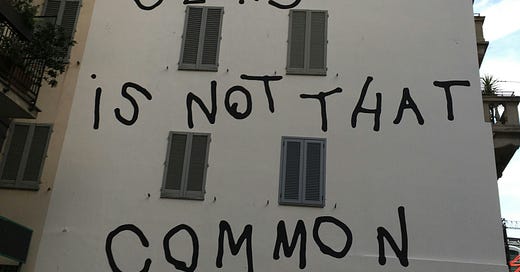 iS NOT THAT
COMMON